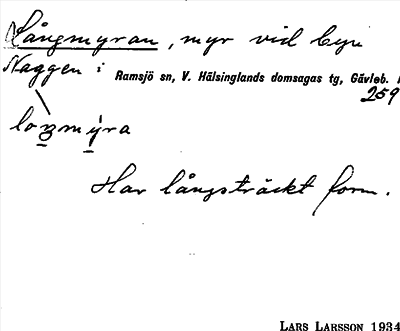 Långmyran, myr vid byn
Naggen i Ramsjö sn, V. Hälsinglands domsagas tg, Gävleb. l
259
loŋmỳra
Har långsträckt form.
LARS LARSSON 1934